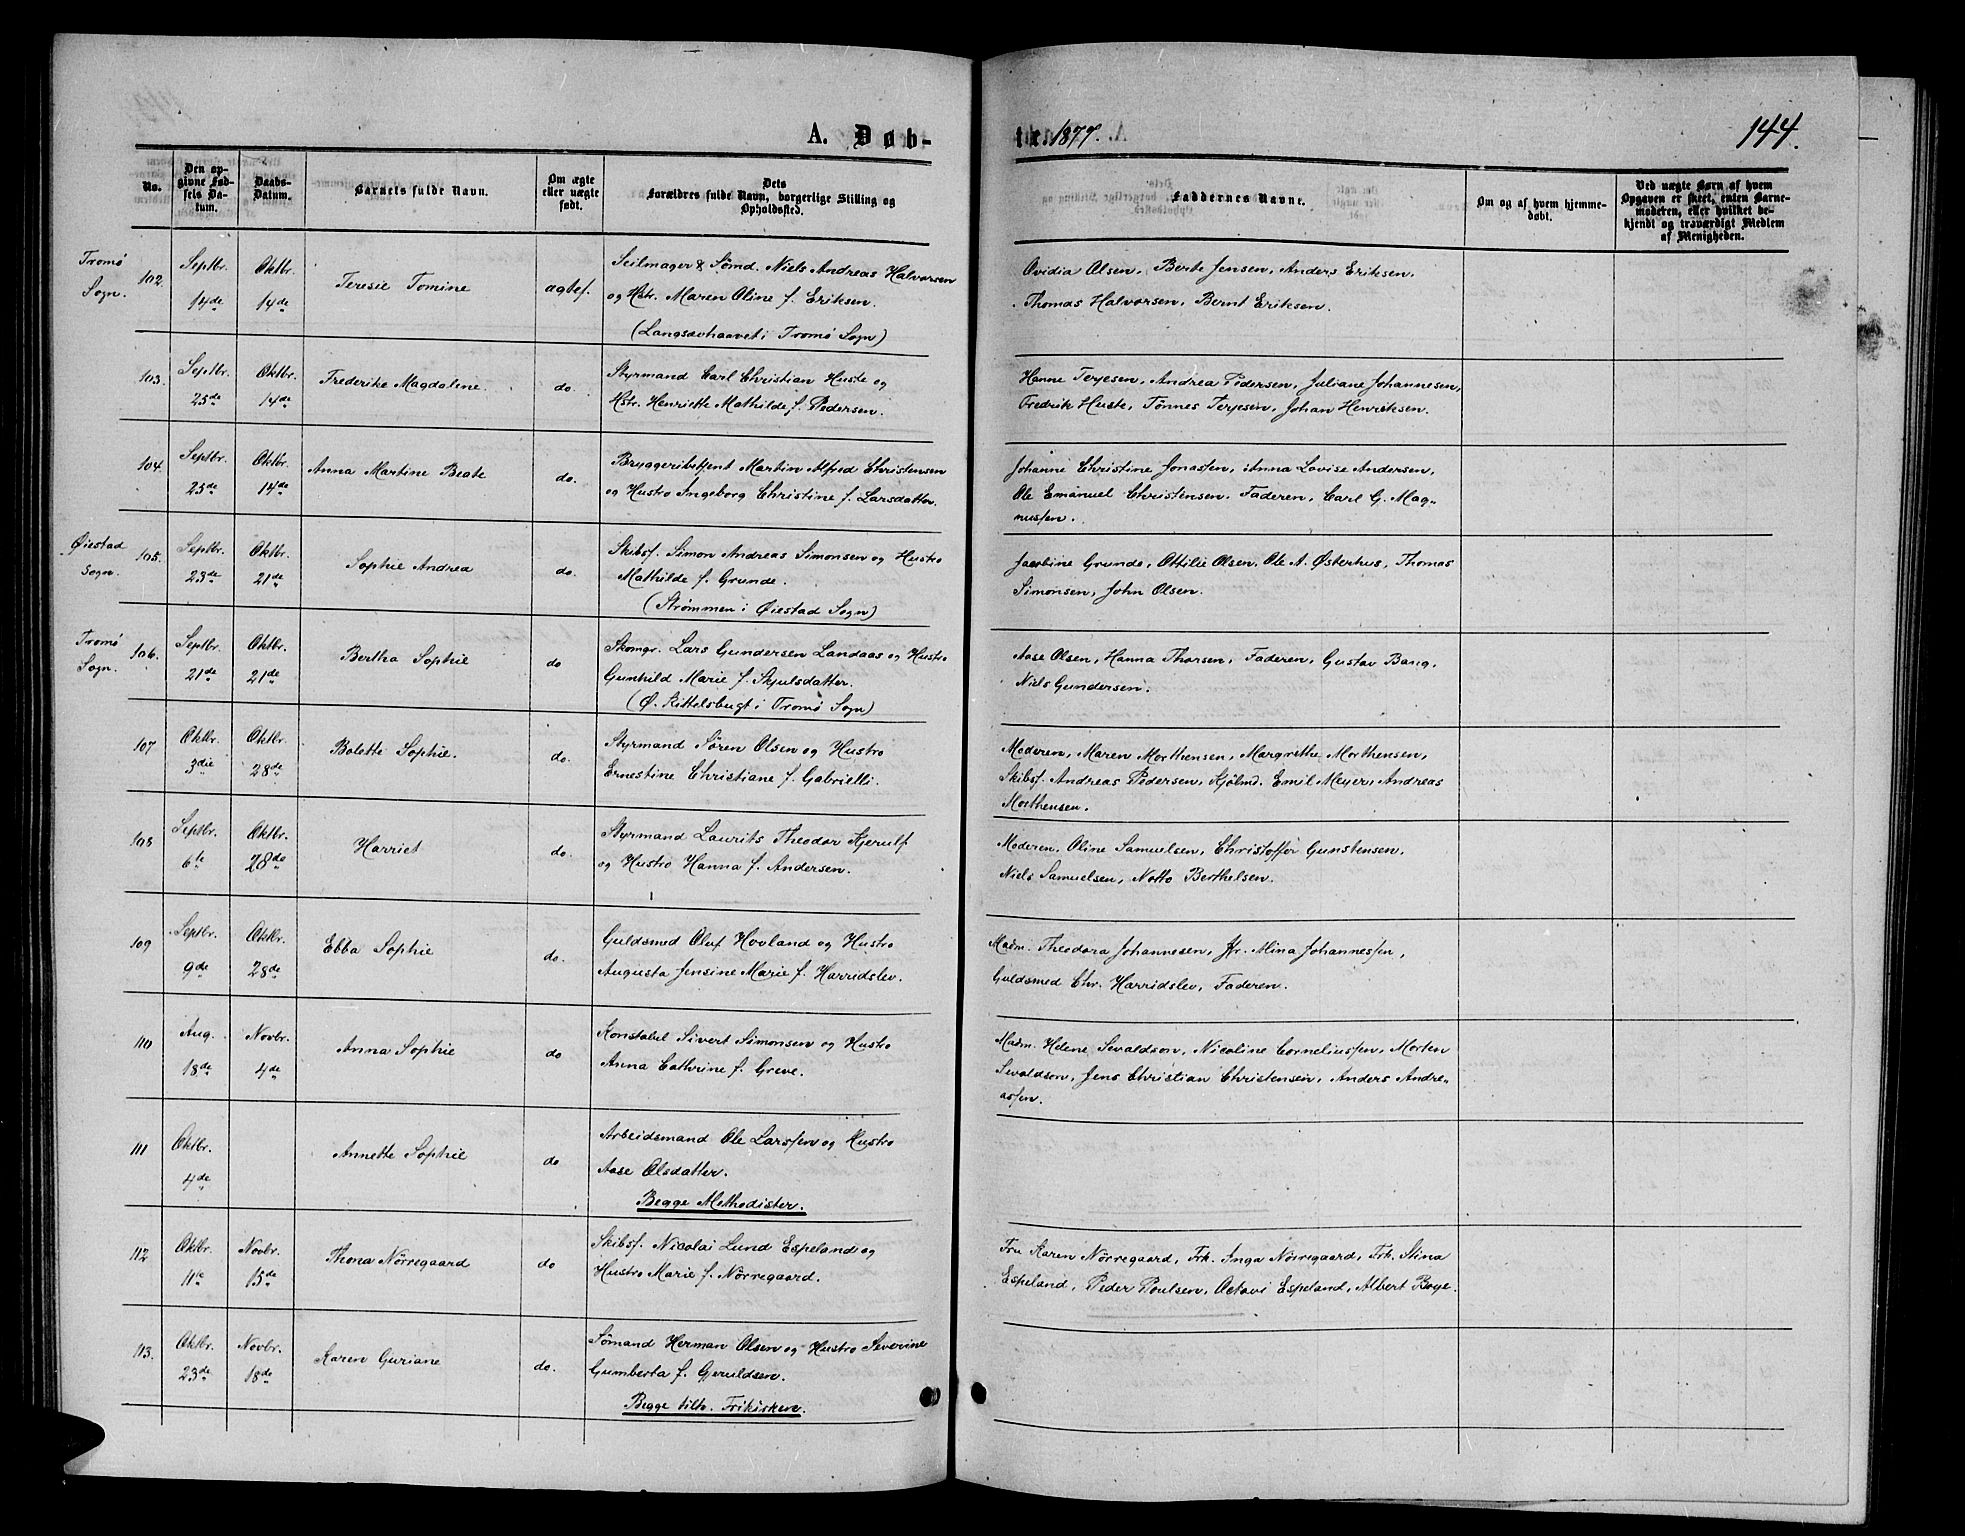 A. Døb-
te. 1877.
144.
No.
Den op-
givne Fød-
sels Da-
tum.
Daabs-
Datum.
Barnets fulde Navn.
Om ægte
eller uægte
født.
Dets
Forældres fulde Navn, borgerlige Stilling og
Opholdssted.
Faddernes Navne.
Om og af hvem hjemme-
døbt.
Ved uægte Børn af hvem
Opgaven er skeet, enten Barne-
moderen, eller hvilket be-
kjendt og troværdigt Medlem
af Menigheden.
Tromø
Sogn.
102.
Septbr.
14de
Oktbr.
14de
Teresie Tomine
ægtef.
Seilmager & Sømd. Niels Andreas Halvorsen
og Hstr. Maren Oline f. Eriksen.
(Langsævhaavet i Tromø Sogn)
Ovidia Olsen, Berte Jensen, Anders Eriksen,
Thomas Halvorsen, Bernt Eriksen.
103.
Septbr.
25de
Oktbr.
14de
Frederike Magdaline.
do.
Styrmand Carl Christian Huste og
Hstr. Henriette Mathilde f. Pedersen.
Hanne Terjesen, Andrea Pedersen, Juliane Johannesen,
Fredrik Huste, Tönnes Terjesen, Johan Henriksen.
104.
Septbr.
25de
Oktbr.
14de
Anna Martine Beate
do.
Bryggeribetjent Martin Alfred Christensen
og Hustro Ingeborg Christine f. Larsdatter.
Johanne Christine Jonassen, Anna Lovise Andersen,
Ole Emanuel Christensen, Faderen, Carl G. Mag-
nussen.
Øiestad
Sogn.
105.
Septbr.
23de
Oktbr.
21de
Sophie Andrea
do.
Skibsf. Simon Andreas Simonsen og Hustro
Mathilde f. Grunde.
(Strømmen i Øiestad Sogn)
Jacobine Grunde, Ottilie Olsen, Ole A. Østerhus, Thomas
Simonsen, John Olsen.
Tromø
Sogn.
106.
Septbr.
21de
Oktbr.
21de
Bertha Sophie
do
Skomgr. Lars Gundersen Landaas og Hustro
Gunhild Marie f. Skjulsdatter.
(Ø. Kittelsbugt i Tromø Sogn)
Aase Olsen, Hanna Thorsen, Faderen, Gustav Bang,
Niels Gundersen.
107
Oktbr.
3die
Oktbr.
28de
Bolette Sophie.
do.
Styrmand Sören Olsen og Hustro
Ernestine Christiane f. Gabrielli.
Moderen, Maren Morthensen, Margrethe Morthensen,
Skibsf. Andreas Pedersen, Kjölmd. Emil Meyer, Andreas
Morthensen.
108
Septbr.
6te
Oktbr.
28de
Harriet
do.
Styrmand Laurits Theodor Kjerulf
og Hustro Hanna f. Andersen.
Moderen, Oline Samuelsen, Christoffer Gunstensen,
Niels Samuelsen, Notto Berthelsen.
109
Septbr.
9de
Oktbr.
28de
Ebba Sophie
do.
Guldsmed Oluf Hovland og Hustro
Augusta Jensine Marie f. Harridslev.
Madm. Theodora Johannesen, Jfr. Alina Johannessen,
Guldsmed Chr. Harridslev, Faderen.
110
Aug.
18de
Novbr.
4de
Anna Sophie
do
Konstabel Sivert Simonsen og Hustro
Anna Cathrine f. Greve.
Madm. Helene Sevaldson, Nicoline Corneliussen, Morten
Sevaldson, Jens Christian Christensen, Anders Andre-
assen.
111
Oktbr.
4de
Annette Sophie
do
Arbeidsmand Ole Larssen og Hustro
Aase Olsdatter.
Begge Methodister.
112
Oktbr.
11te
Novbr.
15de
Thona Nörregaard
do
Skibsf. Nicolai Lund Espeland og
Hustro Marie f. Nörregaard.
Fru Karen Nörregaard, Frk. Inga Nörregaard, Frk. Stina
Espeland, Peder Poulsen, Octavi Espeland, Albert Boye.
113.
Oktbr.
23de
Novbr.
18de
Karen Guriane
do.
Sömand Herman Olsen og Hustro Severine
Gumberta f. Gjeruldsen.
Begge tilh. Frikirken.